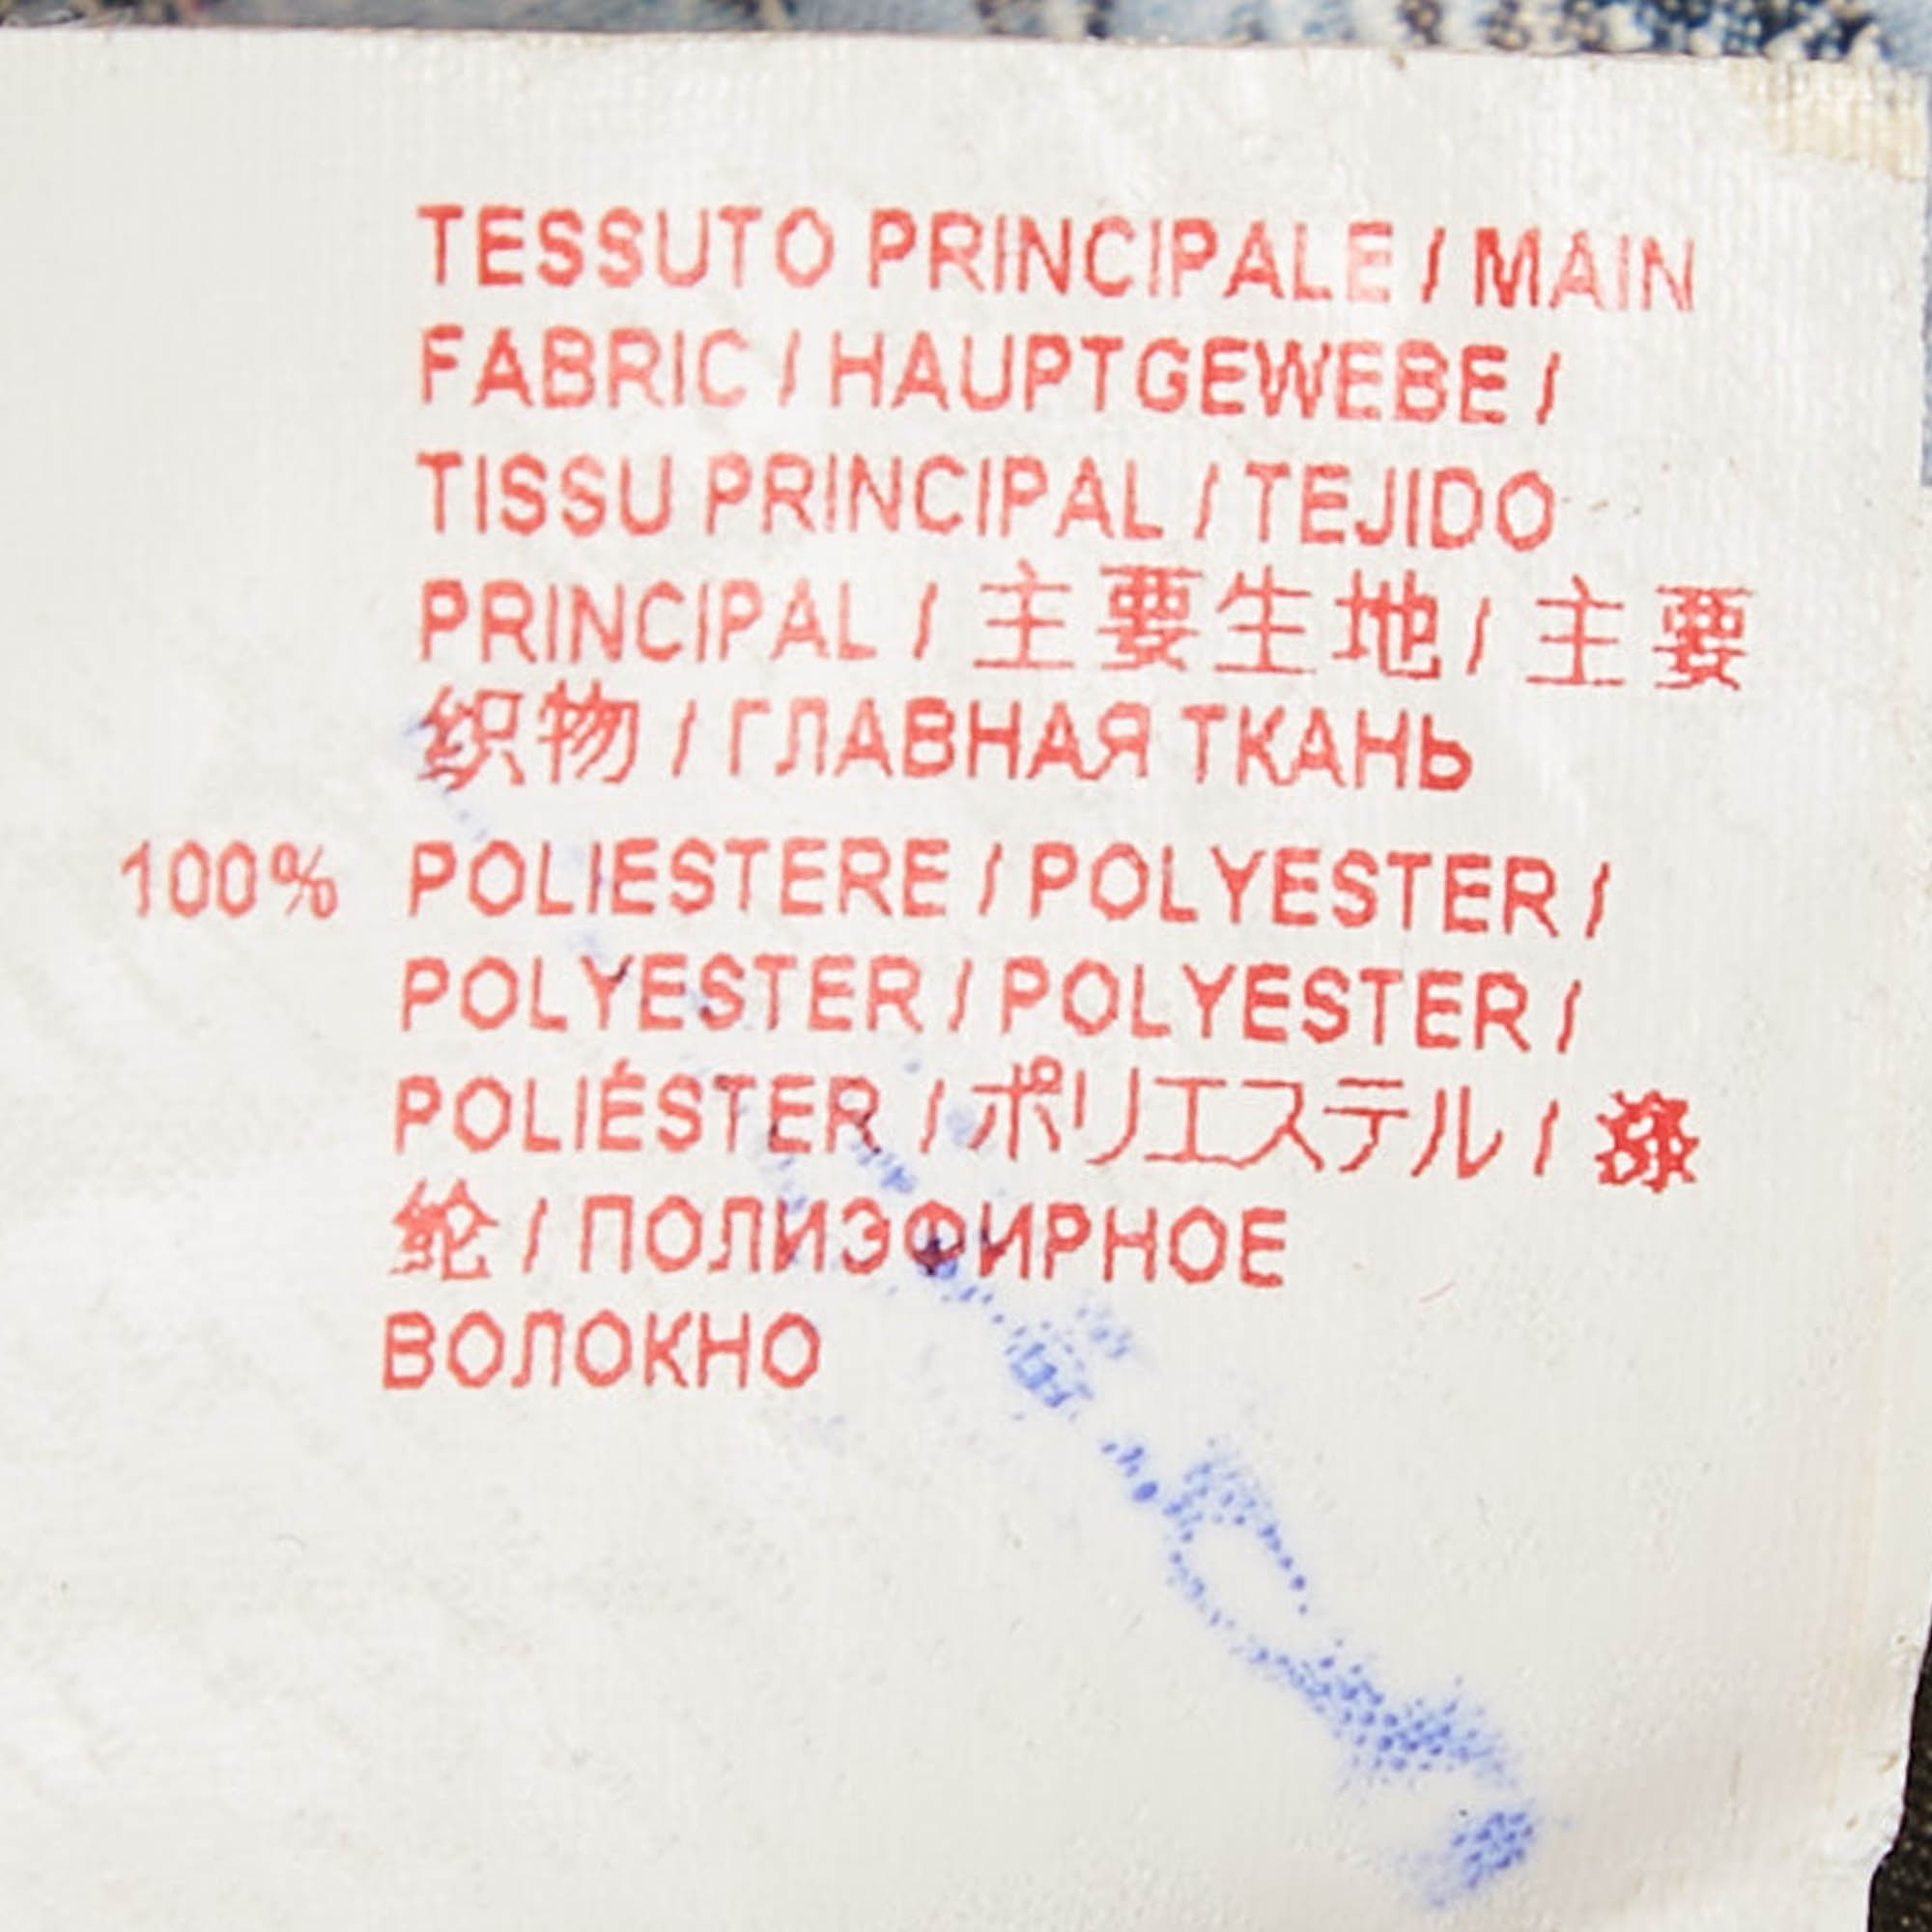 TESSUTO PRINCIPALE / MAIN
FABRIC / HAUPTGEWEBE /
TISSU PRINCIPAL / TEJIDO
PRINCIPAL / 主要生地 / 主要
织物 / ГЛАВНАЯ ТКАНЬ
100% POLIESTERE / POLYESTER /
POLYESTER / POLYESTER /
POLIÉSTER / ポリエステル / 涤
纶 / ПОЛИЭФИРНОЕ
ВОЛОКНО